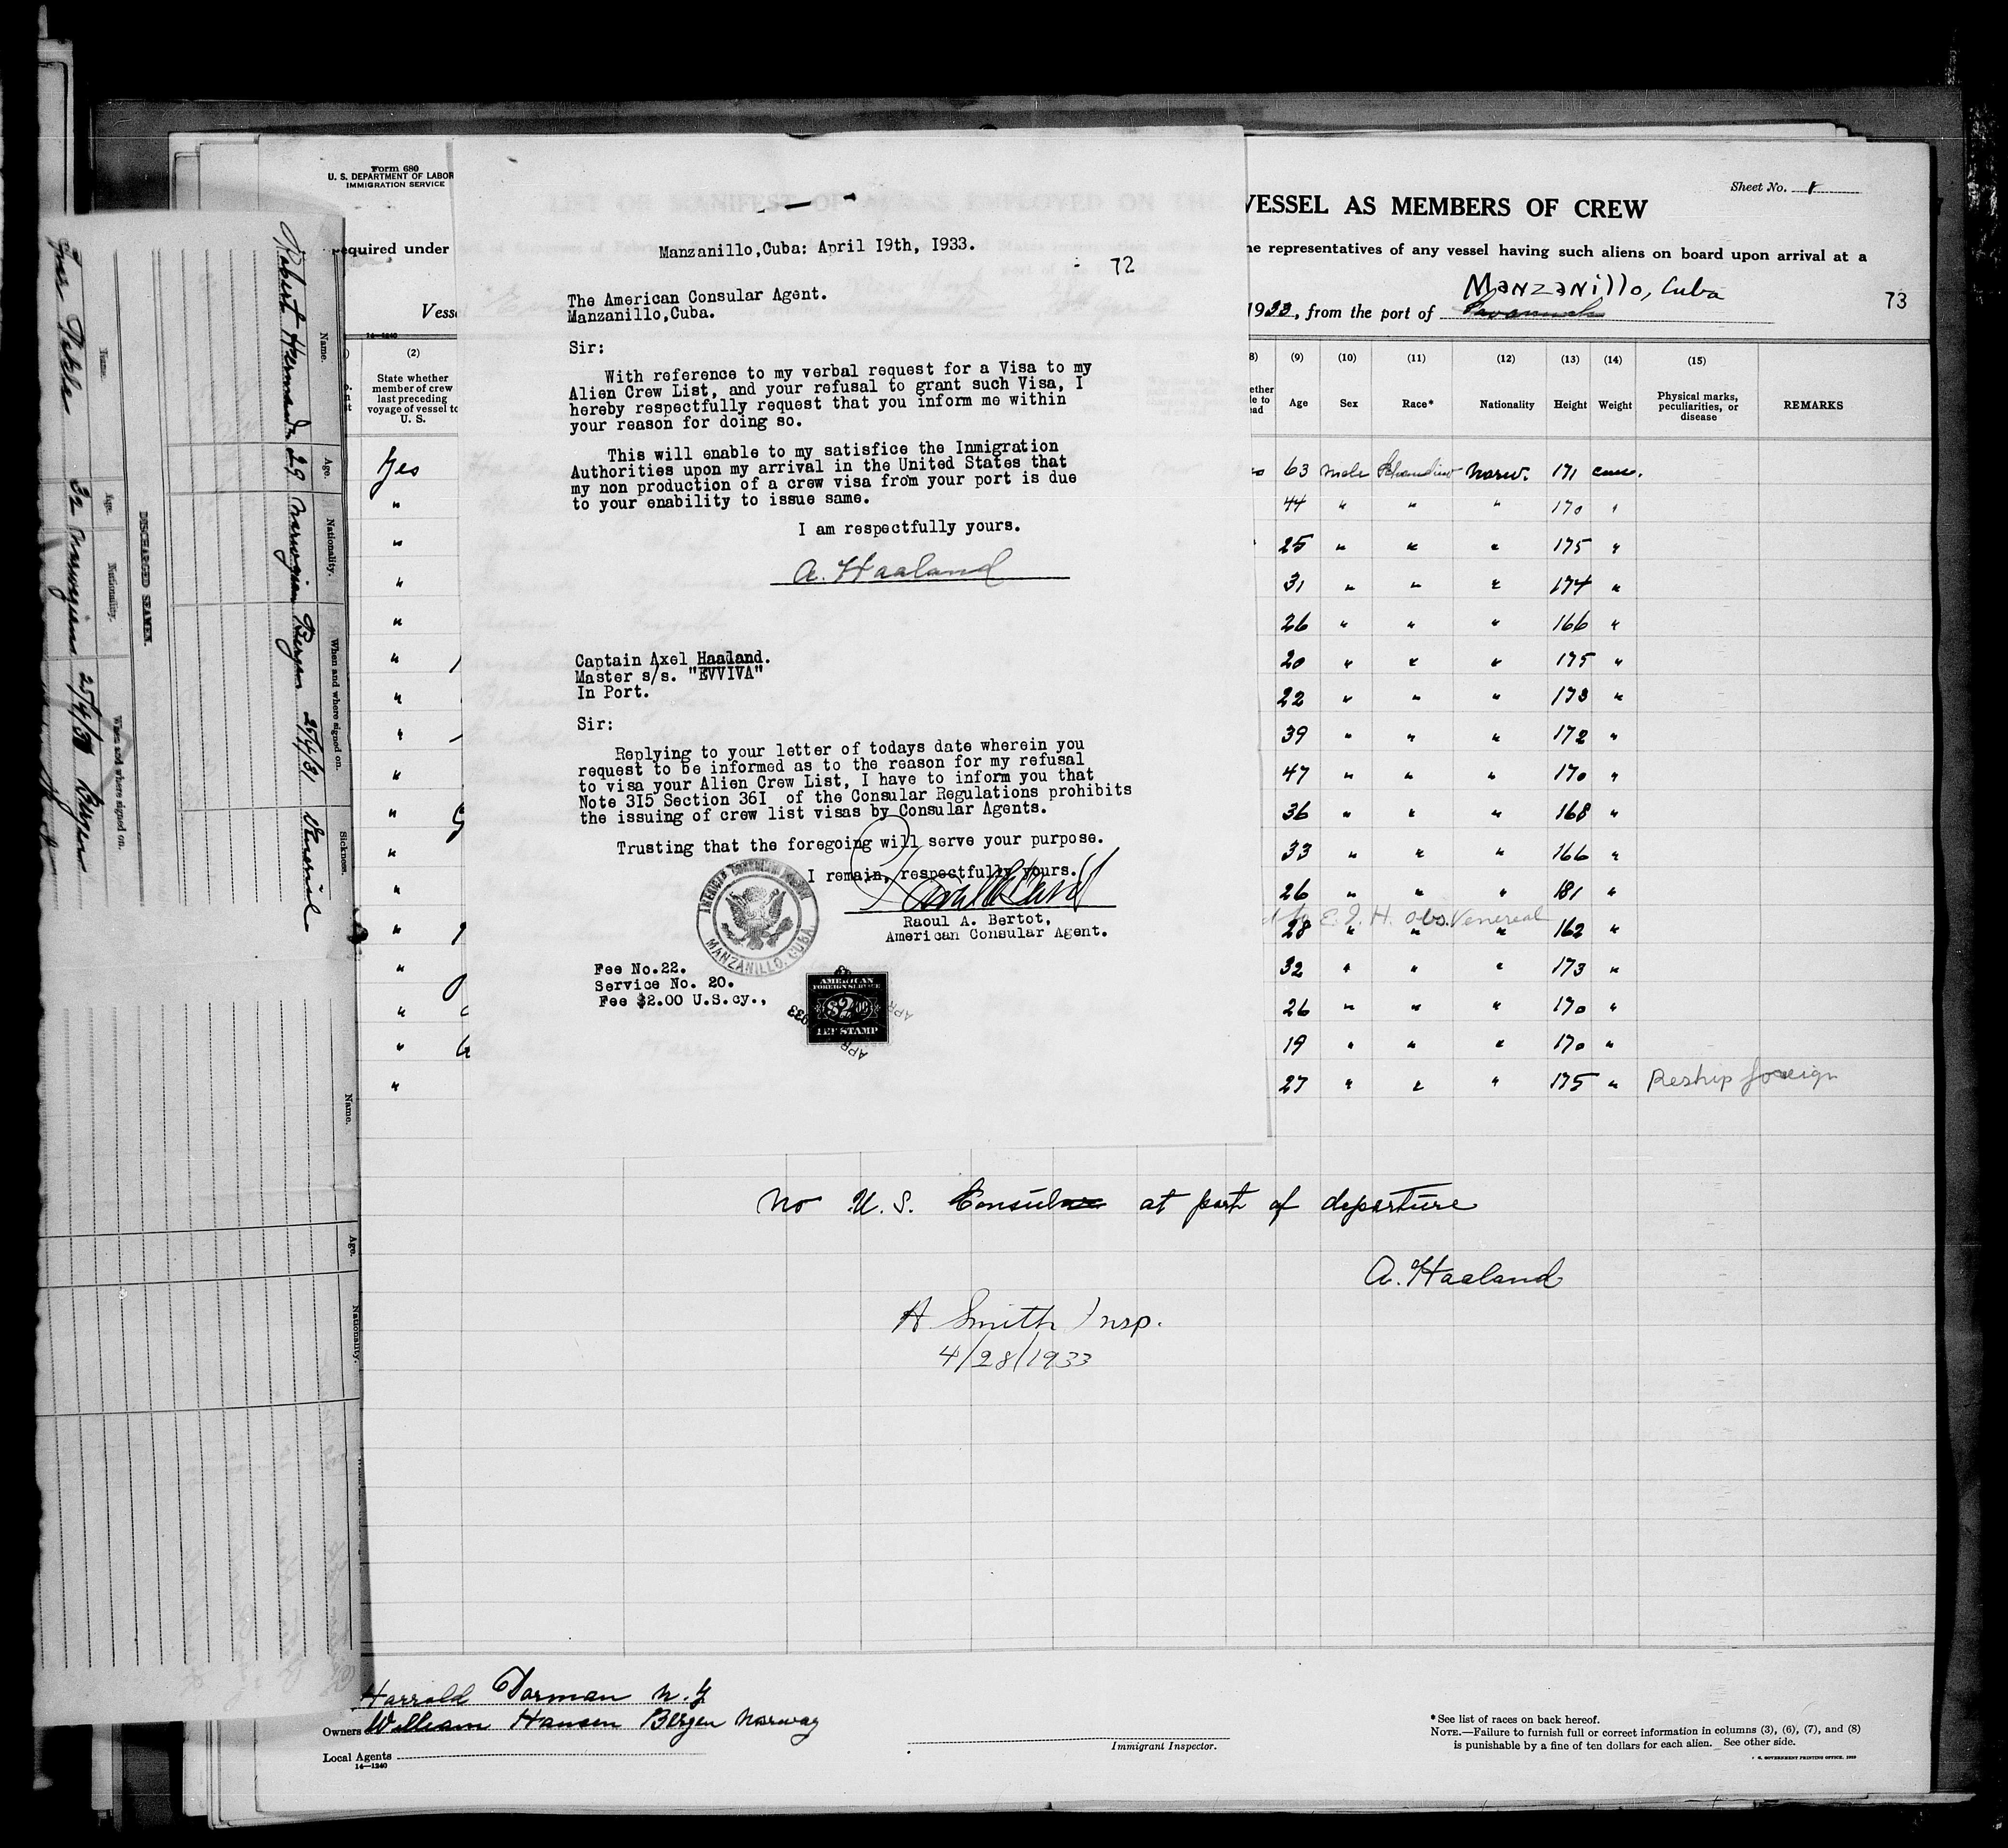 Form 680
U. S. DEPARTMENT OF LABOR
IMMIGRATION SERVICE
Sheet No. 1
VESSEL AS MEMBERS OF CREW
required under
representatives of any vessel having such aliens on board upon arrival at a
Manzanillo, Cuba
1933, from the port of
73
14—1240
Manzanillo,Cuba: April I9th, I933.
72
The American Consular Agent.
Manzanillo,Cuba.
Sir:
With reference to my verbal request for a Visa to my
Alien Crew List, and your refusal to grant such Visa, I
hereby respectfully request that you inform me within
your reason for doing so.
This will enable to my satisfice the Inmigration
Authorities upon my arrival in the United States that
my non production of a crew visa from your port is due
to your enability to issue same.
I am respectfully yours.
A. Haaland
Captain Axel Haaland.
Master s/s. "EVVIVA"
In Port.
Sir:
Replying to your letter of todays date wherein you
request to be informed as to the reason for my refusal
to visa your Alien Crew List, I have to inform you that
Note 3I5 Section 36I of the Consular Regulations prohibits
the issuing of crew list visas by Consular Agents.
Trusting that the foregoing will serve your purpose.
I remain, respectfully yours.
Raoul A. Bertot,
American Consular Agent.
MANZANILLO, CUBA.
Fee No.22.
Service No. 20.
Fee $2.00 U.S.cy.,
AMERICAN
FOREIGN SERVICE
$2.00
FEE STAMP
APR 1933
(2)
State whether
member of crew
last preceding
voyage of vessel to
U. S.
Yes
(9) (10) (11) (12) (13) (14) (15)
Age Sex Race* Nationality Height Weight Physical marks, peculiarities, or disease REMARKS
63 Male Norw. 171 cm.
44 " " " 170 "
25 " " " 175 "
31 " " " 174 "
26 " " " 166 "
20 " " " 175 "
22 " " " 173 "
39 " " " 172 "
47 " " " 170 "
36 " " " 168 "
33 " " " 166 "
26 " " " 181 "
E. I. H. obs. Venereal
28 " " " 162 "
32 " " " 173 "
26 " " " 170 "
19 " " " 170 "
27 " " " 175 " Reship foreign
No U. S. Consul at port of departure
A. Haaland
A Smith Insp.
4/28/1933
Harrold Dorman N.Y
Owners William Hansen Bergen Norway
Local Agents
14—1240
Immigrant Inspector.
*See list of races on back hereof.
NOTE.—Failure to furnish full or correct information in columns (3), (6), (7), and (8)
is punishable by a fine of ten dollars for each alien. See other side.
DISCHARGED SEAMEN.
Name. Age. Nationality. When and where signed on.
32 Norwegian Bergen
Name. Age. Nationality. When and where signed on. Sickness.
Robert 29 Norwegian Bergen 25/4/31 Venereal
Name. Age. Nationality.